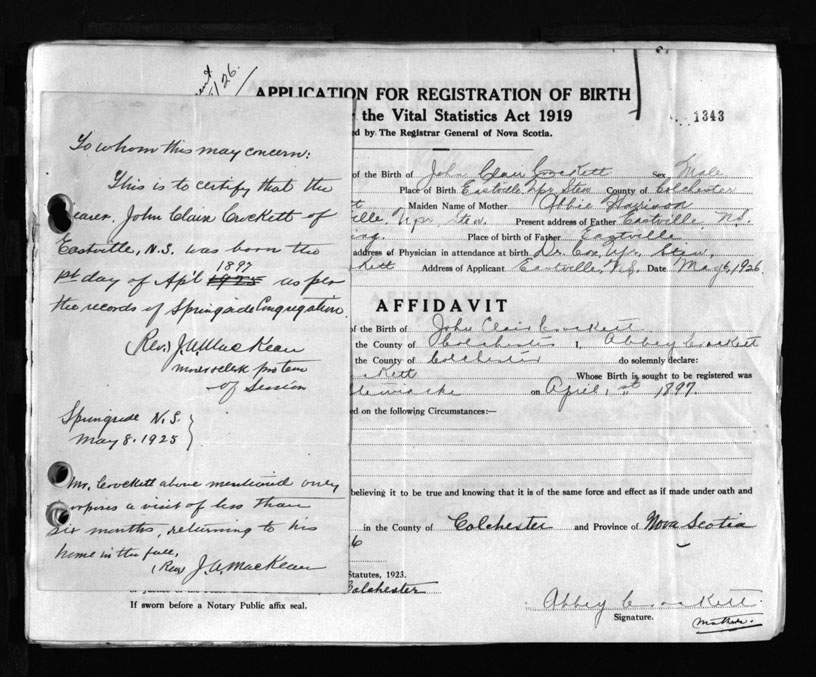 /26.
APPLICATION FOR REGISTRATION OF BIRTH
the Vital Statistics Act 1919
1343
ed by The Registrar General of Nova Scotia.
of the Birth of John Clair Crockett Sex Male
Place of Birth Eastville, Upr Stew County of Colchester
Maiden Name of Mother Abbie Harrison
ille, Upr Stew. Present address of Father Eastville, N.S.
ing. Place of birth of Father Eastville
address of Physician in attendance at birth Dr. Cox, Upr. Stew,
kett Address of Applicant Eastville, N.S. Date May 6, 1926
AFFIDAVIT
of the Birth of John Clair Crockett
the County of Colchester I, Abbey Crockett
the County of Colchester do solemnly declare:
kett Whose Birth is sought to be registered was
on April, 1st 1897
ed on the following Circumstances:—
believing it to be true and knowing that it is of the same force and effect as if made under oath and
in the County of Colchester and Province of Nova Scotia
6
Statutes, 1923.
Colchester
If sworn before a Notary Public affix seal.
Abbey Crockett.
Signature.
Mother.
To whom this may concern:
This is to certify that the
earer, John Clair Crockett of
Eastville, N.S. was born the
1897
1st day of Apl 1925 as per
the records of Springside Congregation.
(Rev.) J.A. MacKean
Mod & clerk pro tem
of Session
Springside N.S.
May 8. 1925
Mr. Crockett above mentioned only
urposes a visit of less than
six months, returning to his
home in the fall.
(Rev) J.A. MacKean